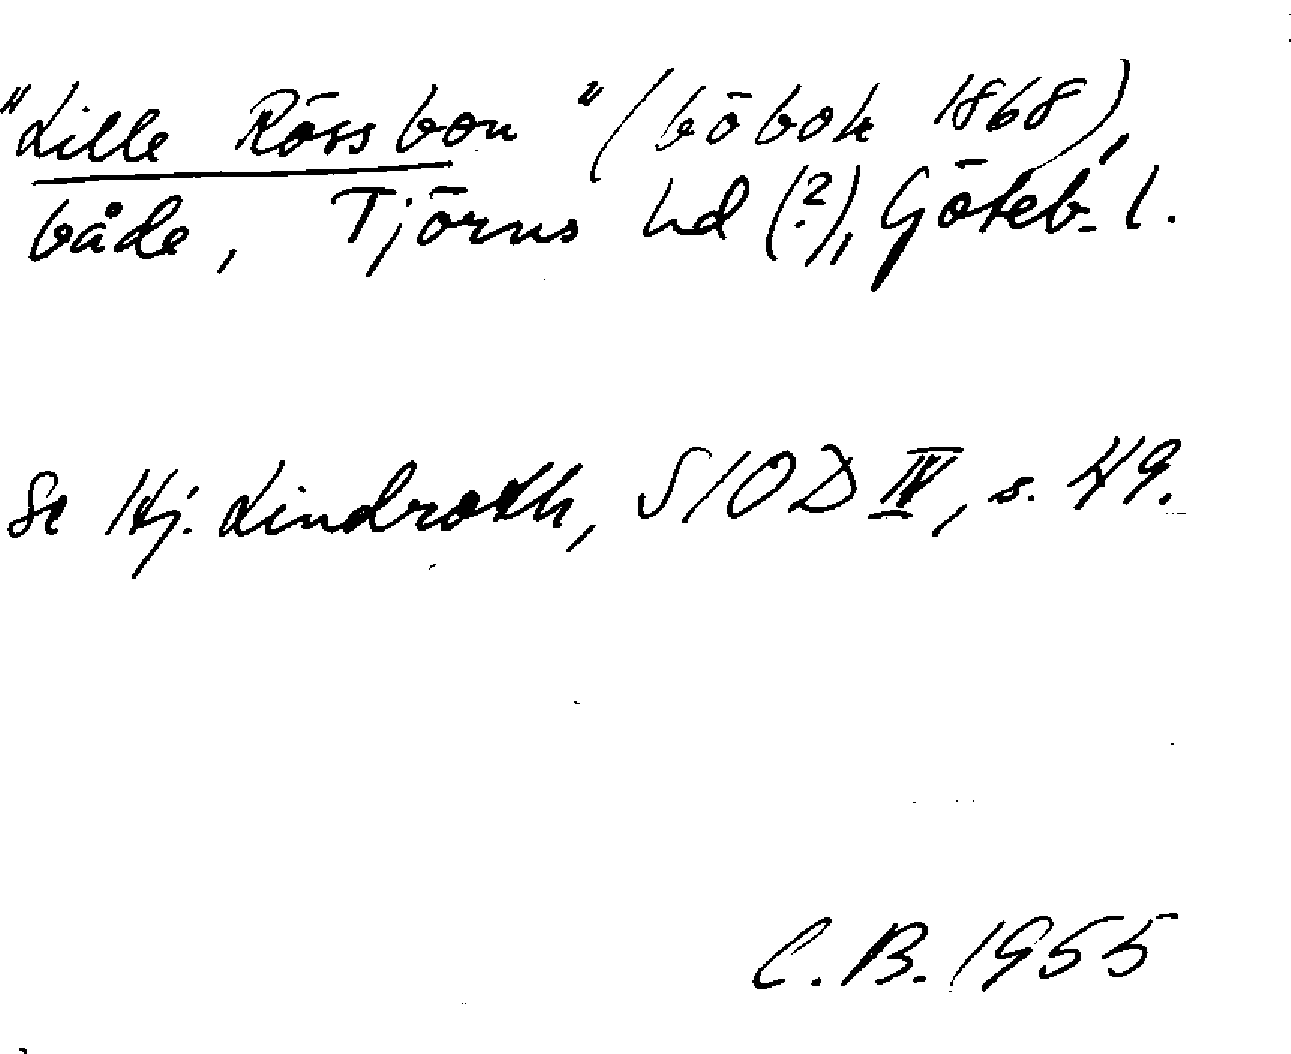 "Lille Rössbon" (böbok 1868),
både, Tjörns hd (?), Göteb. l.
Se Hj. Lindroth, SIOD IV, s. 49.
C. B. 1955